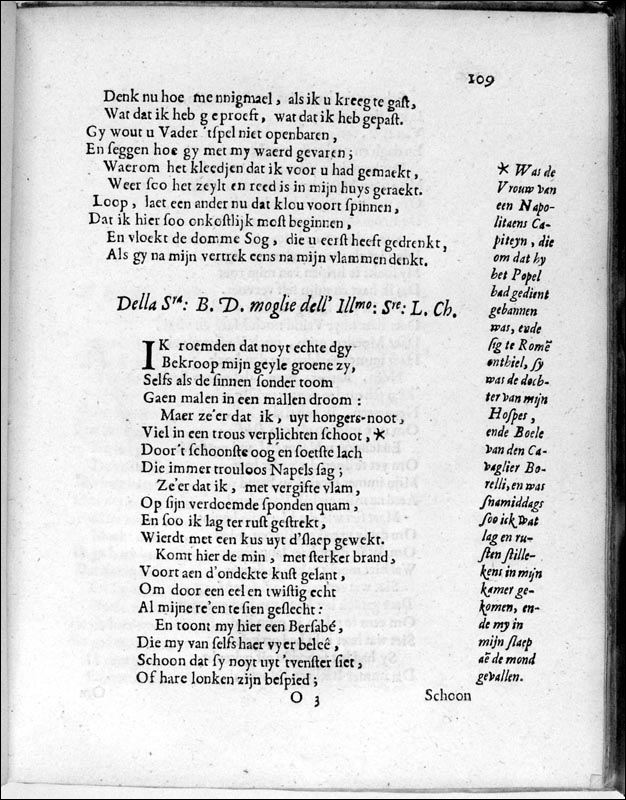 109
Denk nu hoe mennigmael, als ik u kreeg te gast,
Wat dat ik heb geproeft, wat dat ik heb gepast.
Gy wout u Vader 'tspel niet openbaren,
En seggen hoe gy met my waerd gevaren;
Waerom het kleedjen dat ik voor u had gemaekt,
Weer soo het zeylt en reed is in mijn huys geraekt.
Loop, laet een ander nu dat klouvoort spinnen,
Dat ik hier soo onkostlijk most beginnen,
En vloekt de domme Sog, die u eerst heeft gedrenkt,
Als gy na mijn vertrek eens na mijn vlammen denkt.
Della Sra: B. D. moglie dell' Illmo: Sre: L. Ch.
IK roemden dat noyt echte dgy
Bekroop mijn geyle groene zy,
Selfs als de sinnen sonder toom
Gaen malen in een mallen droom:
Maer ze'er dat ik, uyt hongers-noot,
Viel in een trous verplichten schoot, *
Door't schoonste oog en soetste lach
Die immer trouloos Napels sag;
Ze'er dat ik, met vergifte vlam,
Op sijn verdoemde sponden quam,
En soo ik lag ter rust gestrekt,
Wierdt met een kus uyt d'slaep gewekt.
Komt hier de min, met sterker brand,
Voort aen d'ondekte kust gelant,
Om door een eel en twistig echt
Al mijne re'en te sien geslecht:
En toont my hier een Bersabé,
Die my van selfs haer vyer belcê,
Schoon dat sy noyt uyt 'tvenster siet,
Of hare lonken zijn bespied;
O 3
Schoon
* Was de
Vrouw van
een Napo-
litaens Ca-
piteyn, die
om dat hy
het Popel
had gedient
gebannen
was, ende
sig te Romē
onthiel, sy
was de doch-
ter van mijn
Hospes,
ende Boele
van den Ca-
vaglier Bo-
relli, en was
snamiddags
soo ick wat
lag en ru-
sten stille-
kens in mijn
kamer ge-
komen, en-
de my in
mijn slaep
aē de mond
gevallen.